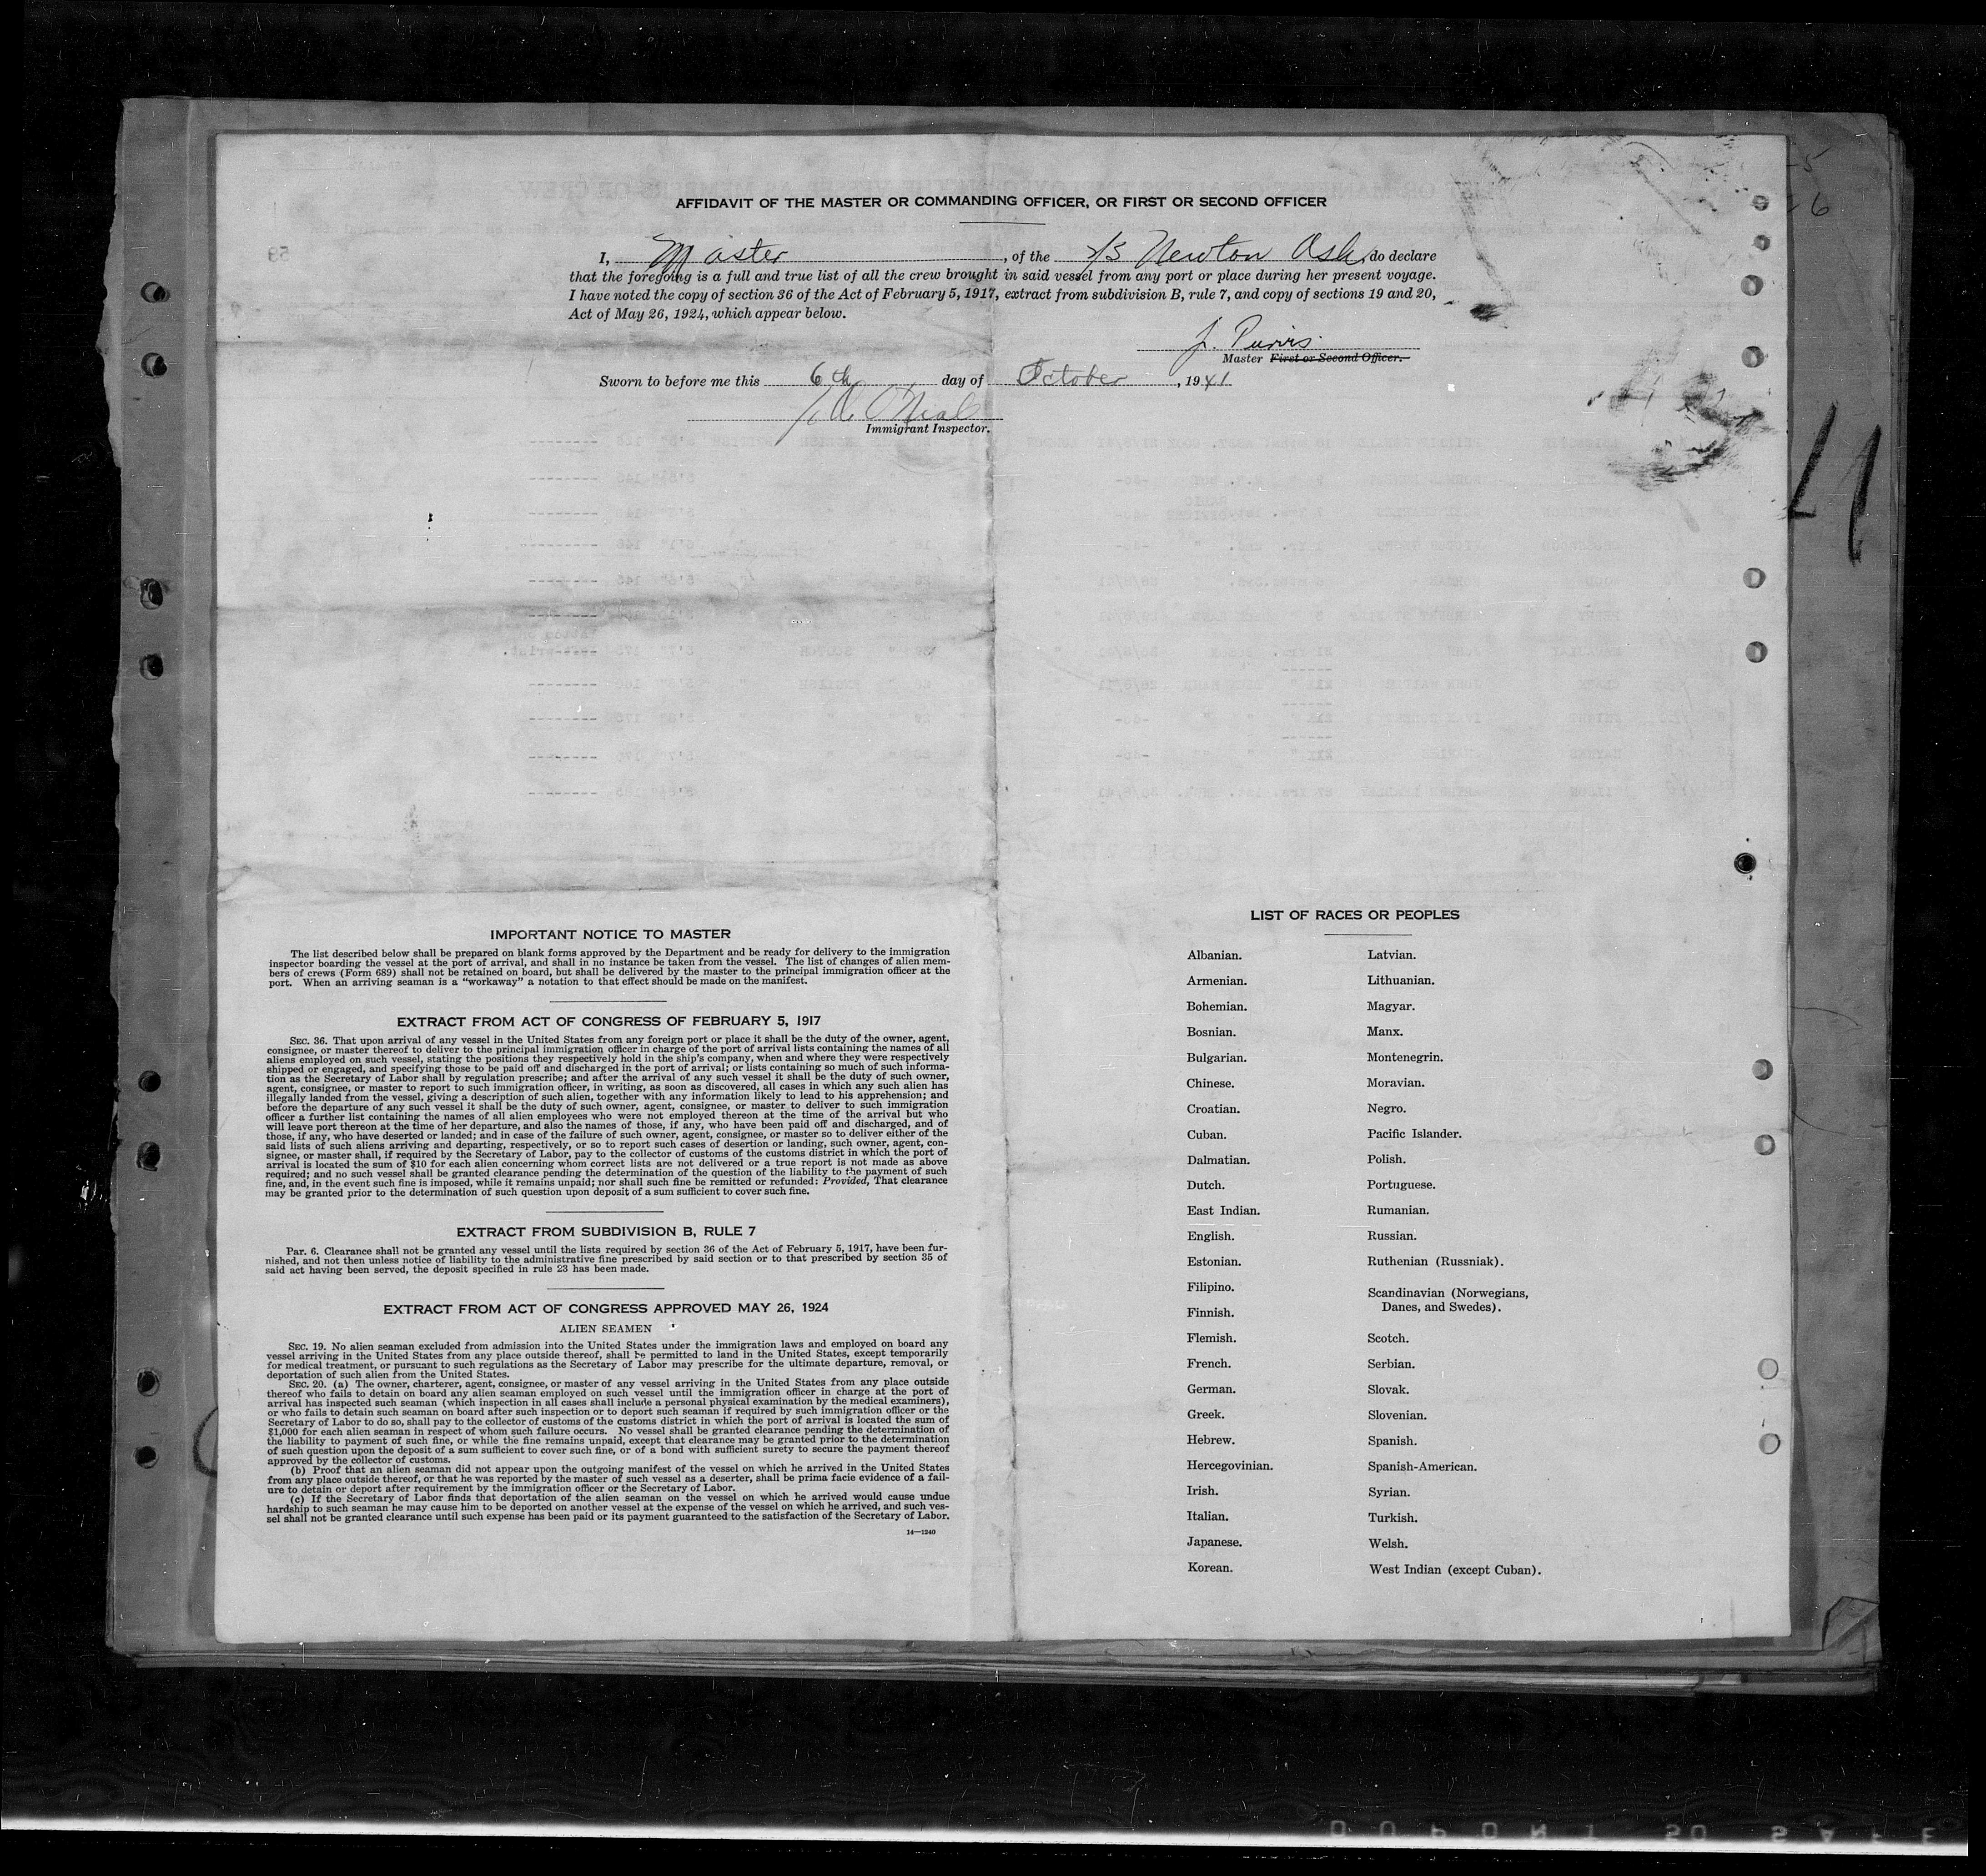 AFFIDAVIT OF THE MASTER OR COMMANDING OFFICER, OR FIRST OR SECOND OFFICER
I, Master, of the S/S Newton Ash do declare
that the foregoing is a full and true list of all the crew brought in said vessel from any port or place during her present voyage.
I have noted the copy of section 36 of the Act of February 5, 1917, extract from subdivision B, rule 7, and copy of sections 19 and 20,
Act of May 26, 1924, which appear below.
J. Purvis.
Master First or Second Officer.
Sworn to before me this 6th day of October, 1941
O'Neal
Immigrant Inspector.
IMPORTANT NOTICE TO MASTER
The list described below shall be prepared on blank forms approved by the Department and be ready for delivery to the immigration
inspector boarding the vessel at the port of arrival, and shall in no instance be taken from the vessel. The list of changes of alien mem-
bers of crews (Form 689) shall not be retained on board, but shall be delivered by the master to the principal immigration officer at the
port. When an arriving seaman is a "workaway" a notation to that effect should be made on the manifest.
EXTRACT FROM ACT OF CONGRESS OF FEBRUARY 5, 1917
SEC. 36. That upon arrival of any vessel in the United States from any foreign port or place it shall be the duty of the owner, agent,
consignee, or master thereof to deliver to the principal immigration officer in charge of the port of arrival lists containing the names of all
aliens employed on such vessel, stating the positions they respectively hold in the ship's company, when and where they were respectively
shipped or engaged, and specifying those to be paid off and discharged in the port of arrival; or lists containing so much of such informa-
tion as the Secretary of Labor shall by regulation prescribe; and after the arrival of any such vessel it shall be the duty of such owner,
agent, consignee, or master to report to such immigration officer, in writing, as soon as discovered, all cases in which any such alien has
illegally landed from the vessel, giving a description of such alien, together with any information likely to lead to his apprehension; and
before the departure of any such vessel it shall be the duty of such owner, agent, consignee, or master to deliver to such immigration
officer a further list containing the names of all alien employees who were not employed thereon at the time of the arrival but who
will leave port thereon at the time of her departure, and also the names of those, if any, who have been paid off and discharged, and of
those, if any, who have deserted or landed; and in case of the failure of such owner, agent, consignee, or master so to deliver either of the
said lists of such aliens arriving and departing, respectively, or so to report such cases of desertion or landing, such owner, agent, con-
signee, or master shall, if required by the Secretary of Labor, pay to the collector of customs of the customs district in which the port of
arrival is located the sum of $10 for each alien concerning whom correct lists are not delivered or a true report is not made as above
required; and no such vessel shall be granted clearance pending the determination of the question of the liability to the payment of such
fine, and, in the event such fine is imposed, while it remains unpaid; nor shall such fine be remitted or refunded: Provided, That clearance
may be granted prior to the determination of such question upon deposit of a sum sufficient to cover such fine.
EXTRACT FROM SUBDIVISION B, RULE 7
Par. 6. Clearance shall not be granted any vessel until the lists required by section 36 of the Act of February 5, 1917, have been fur-
nished, and not then unless notice of liability to the administrative fine prescribed by said section or to that prescribed by section 35 of
said act having been served, the deposit specified in rule 23 has been made.
EXTRACT FROM ACT OF CONGRESS APPROVED MAY 26, 1924
ALIEN SEAMEN
SEC. 19. No alien seaman excluded from admission into the United States under the immigration laws and employed on board any
vessel arriving in the United States from any place outside thereof, shall be permitted to land in the United States, except temporarily
for medical treatment, or pursuant to such regulations as the Secretary of Labor may prescribe for the ultimate departure, removal, or
deportation of such alien from the United States.
SEC. 20. (a) The owner, charterer, agent, consignee, or master of any vessel arriving in the United States from any place outside
thereof who fails to detain on board any alien seaman employed on such vessel until the immigration officer in charge at the port of
arrival has inspected such seaman (which inspection in all cases shall include a personal physical examination by the medical examiners),
or who fails to detain such seaman on board after such inspection or to deport such seaman if required by such immigration officer or the
Secretary of Labor to do so, shall pay to the collector of customs of the customs district in which the port of arrival is located the sum of
$1,000 for each alien seaman in respect of whom such failure occurs. No vessel shall be granted clearance pending the determination of
the liability to payment of such fine, or while the fine remains unpaid, except that clearance may be granted prior to the determination
of such question upon the deposit of a sum sufficient to cover such fine, or of a bond with sufficient surety to secure the payment thereof
approved by the collector of customs.
(b) Proof that an alien seaman did not appear upon the outgoing manifest of the vessel on which he arrived in the United States
from any place outside thereof, or that he was reported by the master of such vessel as a deserter, shall be prima facie evidence of a fail-
ure to detain or deport after requirement by the immigration officer or the Secretary of Labor.
(c) If the Secretary of Labor finds that deportation of the alien seaman on the vessel on which he arrived would cause undue
hardship to such seaman he may cause him to be deported on another vessel at the expense of the vessel on which he arrived, and such ves-
sel shall not be granted clearance until such expense has been paid or its payment guaranteed to the satisfaction of the Secretary of Labor.
14—1240
LIST OF RACES OR PEOPLES
Albanian.
Armenian.
Bohemian.
Bosnian.
Bulgarian.
Chinese.
Croatian.
Cuban.
Dalmatian.
Dutch.
East Indian.
English.
Estonian.
Filipino.
Finnish.
Flemish.
French.
German.
Greek.
Hebrew.
Hercegovinian.
Irish.
Italian.
Japanese.
Korean.
Latvian.
Lithuanian.
Magyar.
Manx.
Montenegrin.
Moravian.
Negro.
Pacific Islander.
Polish.
Portuguese.
Rumanian.
Russian.
Ruthenian (Russniak).
Scandinavian (Norwegians,
Danes, and Swedes).
Scotch.
Serbian.
Slovak.
Slovenian.
Spanish.
Spanish-American.
Syrian.
Turkish.
Welsh.
West Indian (except Cuban).